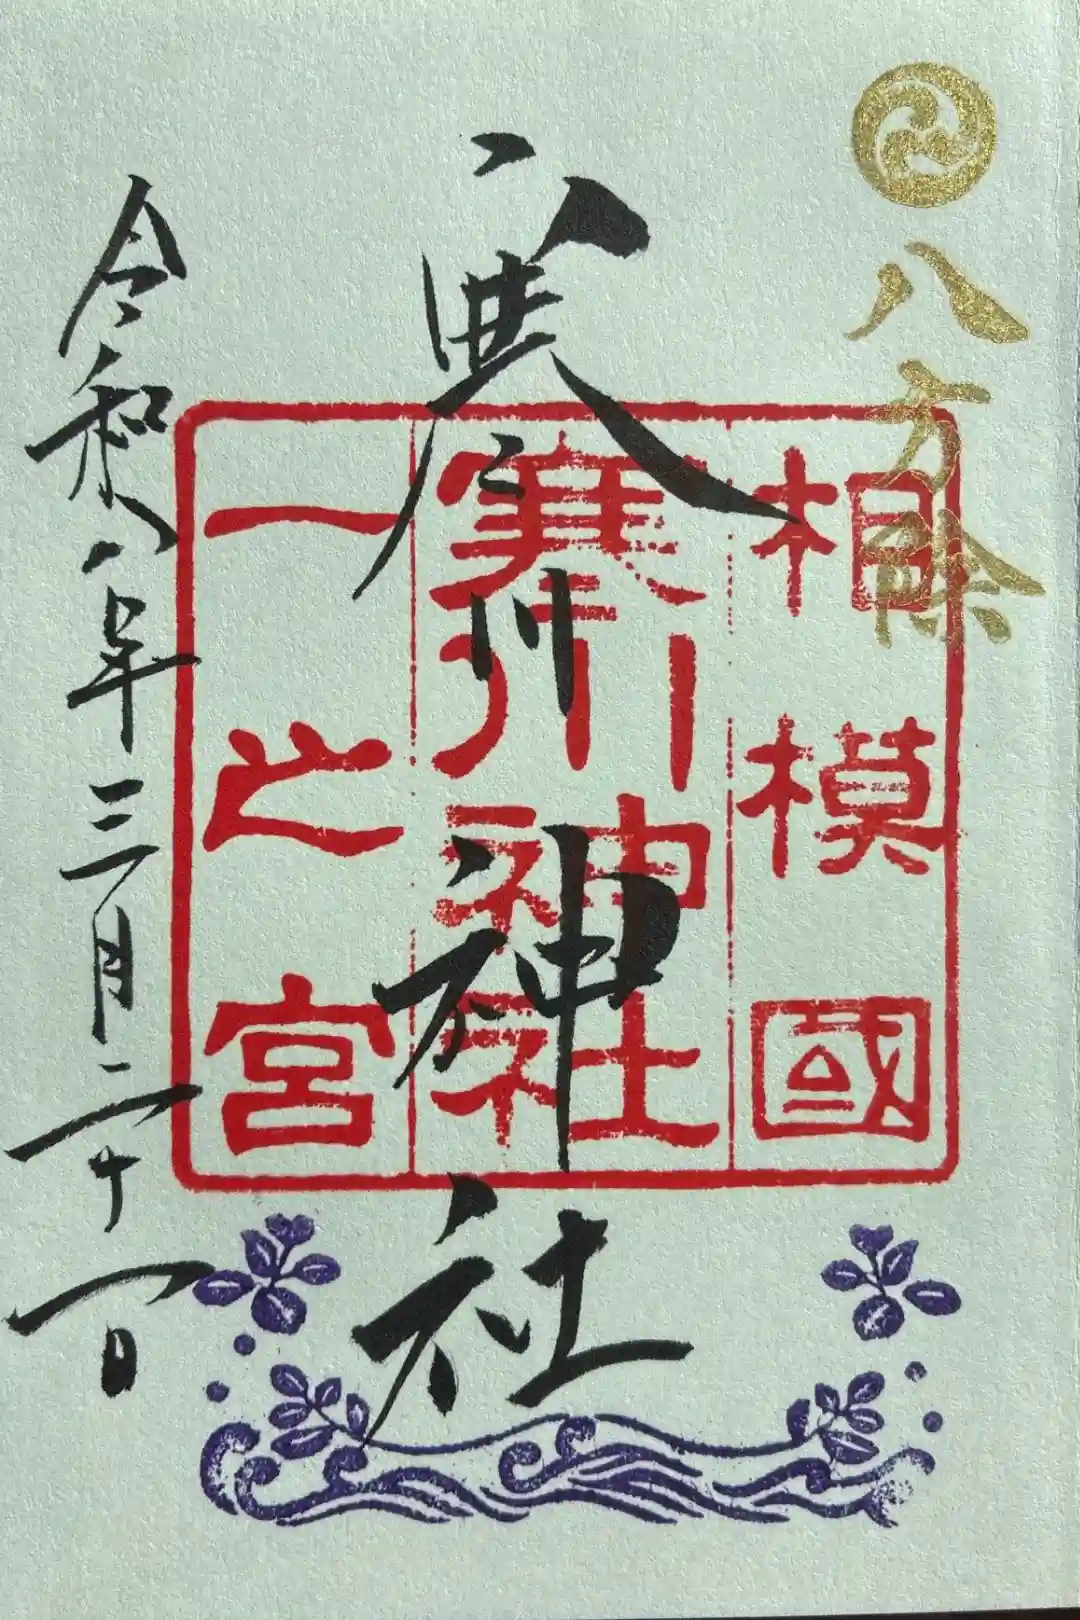 八方除
寒川神社
相模國
寒川神社
一之宮
令和八年三月二十一日